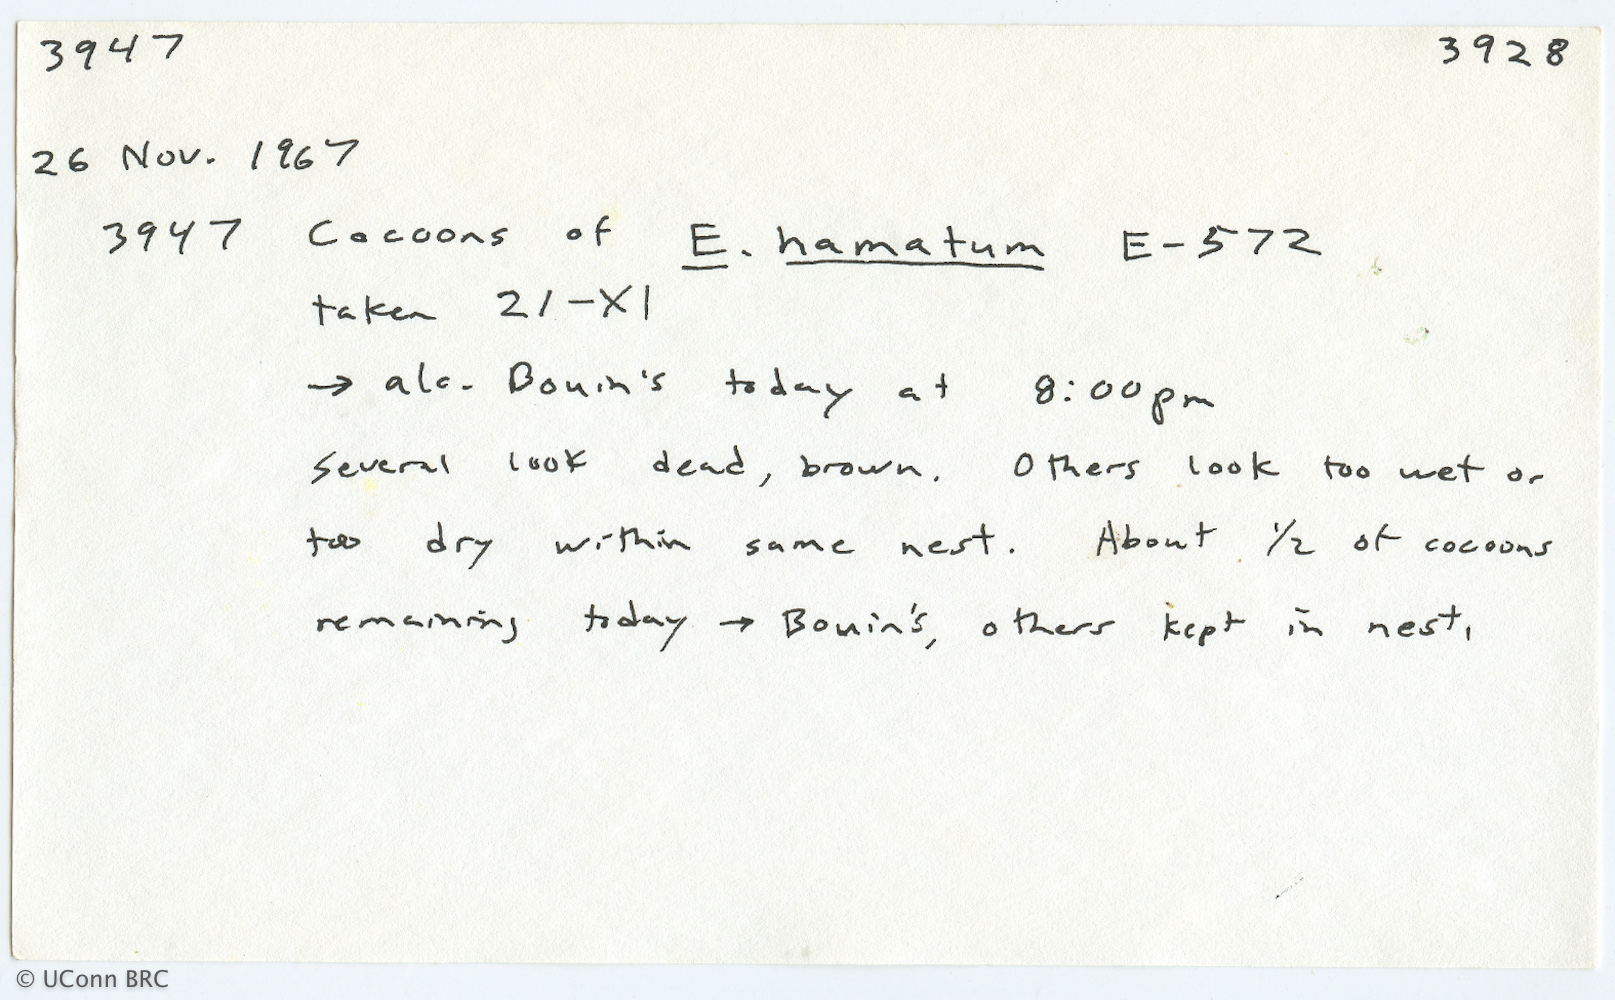 3947 3928
26 Nov. 1967
3947 Cocoons of E. hamatum E-572
taken 21-XI
→ alc. Bouin's today at 8:00pm
Several look dead, brown. Others look too wet or
too dry within same nest. About 1/2 of cocoons
remaining today → Bouin's, others kept in nest.
© UConn BRC